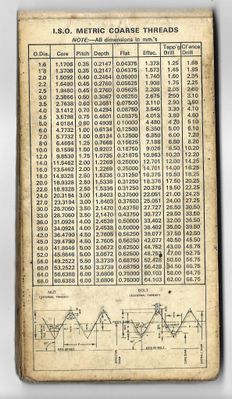 I.S.O. METRIC COARSE THREADS
NOTE:—All dimensions in mm.'s
O.Dia. Core Pitch Depth Flat Effec. Tapp'g Drill Cl'ance Drill
1.6 1.1706 0.35 0.2147 0.04375 1.373 1.25 1.65
1.8 1.3706 0.35 0.2147 0.04375 1.573 1.45 1.85
2.0 1.5092 0.40 0.2454 0.05000 1.740 1.60 2.05
2.2 1.6480 0.45 0.2760 0.05625 1.908 1.75 2.25
2.5 1.9480 0.45 0.2760 0.05625 2.208 2.05 2.60
3.0 2.3866 0.50 0.3067 0.06250 2.675 2.50 3.10
3.5 2.7638 0.60 0.3681 0.07500 3.110 2.90 3.60
4.0 3.1412 0.70 0.4294 0.08750 3.545 3.30 4.10
4.5 3.5798 0.75 0.4601 0.09375 4.013 3.80 4.60
5.0 4.0184 0.80 0.4908 0.10000 4.480 4.20 5.10
6.0 4.7732 1.00 0.6134 0.12500 5.350 5.00 6.10
7.0 5.7732 1.00 0.6134 0.12500 6.350 6.00 7.20
8.0 6.4664 1.25 0.7668 0.15625 7.188 6.80 8.20
10.0 8.1596 1.50 0.9202 0.18750 9.026 8.50 10.20
12.0 9.8530 1.75 1.0735 0.21875 10.863 10.20 12.20
14.0 11.5462 2.00 1.2269 0.25000 12.701 12.00 14.25
16.0 13.5462 2.00 1.2269 0.25000 14.701 14.00 16.25
18.0 14.9328 2.50 1.5336 0.31250 16.376 15.50 18.25
20.0 16.9328 2.50 1.5336 0.31250 18.376 17.50 20.25
22.0 18.9328 2.50 1.5336 0.31250 20.376 19.50 22.25
24.0 20.3194 3.00 1.8403 0.37500 22.051 21.00 24.25
27.0 23.3194 3.00 1.8403 0.37500 25.051 24.00 27.25
30.0 25.7060 3.50 2.1470 0.43750 27.727 26.50 30.50
33.0 28.7060 3.50 2.1470 0.43750 30.727 29.50 33.50
36.0 31.0924 4.00 2.4538 0.50000 33.402 32.00 36.50
39.0 34.0924 4.00 2.4538 0.50000 36.402 35.00 39.50
42.0 36.4790 4.50 2.7605 0.56250 39.077 37.50 42.50
45.0 39.4790 4.50 2.7605 0.56250 42.077 40.50 45.50
48.0 41.8646 5.00 3.0672 0.62500 44.752 43.00 48.75
52.0 45.8646 5.00 3.0672 0.62500 48.752 47.00 52.75
56.0 49.2522 5.50 3.3739 0.68750 52.428 50.50 56.75
60.0 53.2522 5.50 3.3739 0.68750 56.428 54.50 60.75
64.0 56.6388 6.00 3.6806 0.75000 60.103 58.00 64.75
68.0 60.6388 6.00 3.6806 0.75000 64.103 62.00 68.75
NUT BOLT
(INTERNAL THREAD) (EXTERNAL THREAD)
AXIS OF NUT AXIS OF BOLT